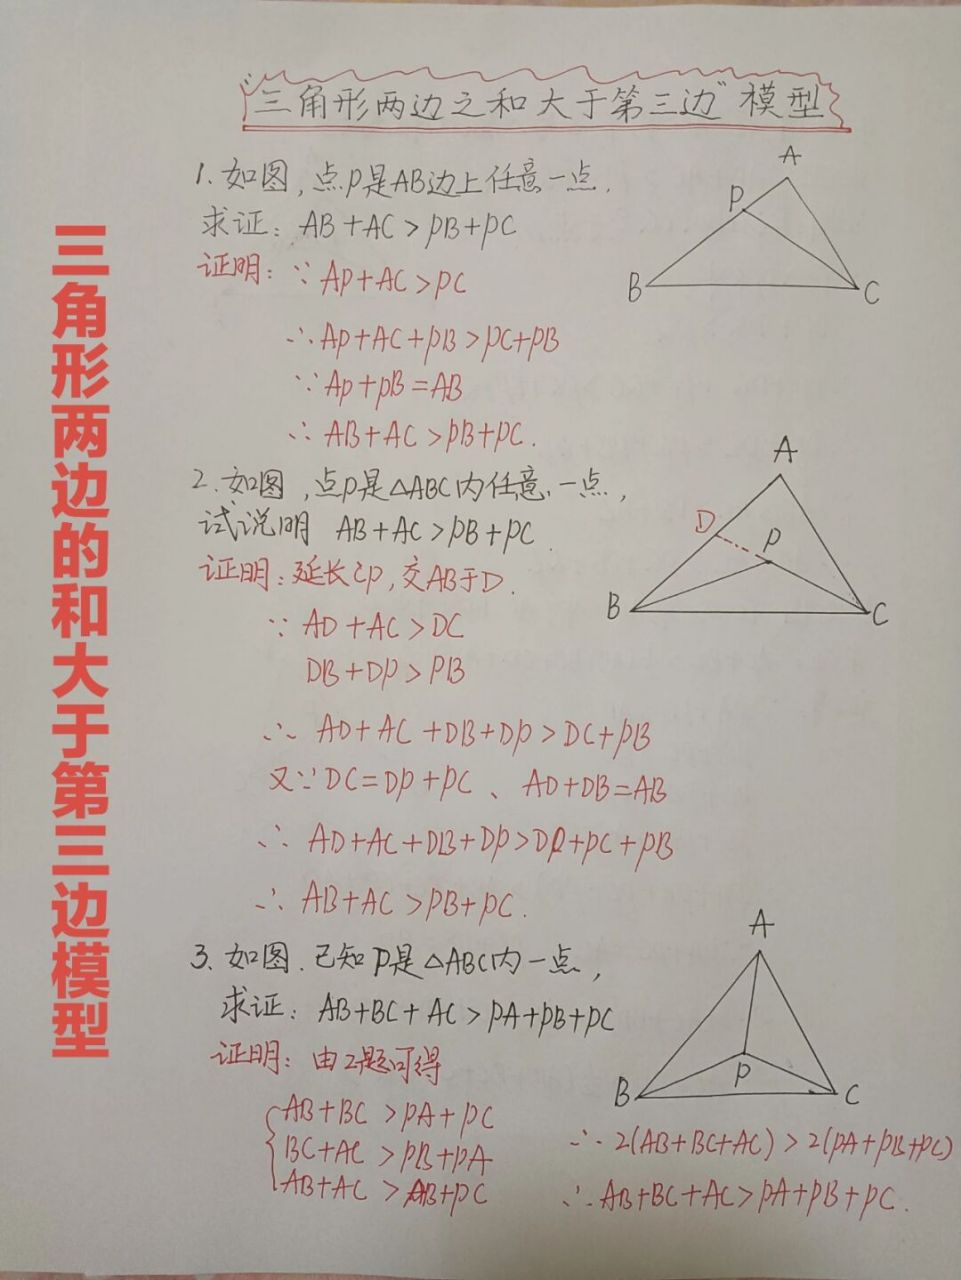 "三角形两边之和大于第三边"模型
三角形两边的和大于第三边模型
1. 如图,点P是AB边上任意一点.
求证: AB+AC>PB+PC
证明: ∵ AP+AC>PC
∴ AP+AC+PB>PC+PB
∵ AP+PB=AB
∴ AB+AC>PB+PC.
A
P
B
C
2. 如图,点P是△ABC内任意一点,
试说明 AB+AC>PB+PC.
证明: 延长CP,交AB于D.
∵ AD+AC>DC
DB+DP>PB
∴ AD+AC+DB+DP>DC+PB
又∵DC=DP+PC、AD+DB=AB
∴ AD+AC+DB+DP>DP+PC+PB
∴ AB+AC>PB+PC.
A
D
P
B
C
3. 如图.已知P是△ABC内一点,
求证: AB+BC+AC>PA+PB+PC
证明: 由2题可得
AB+BC>PA+PC
BC+AC>PB+PA
AB+AC>PB+PC
∴ 2(AB+BC+AC)>2(PA+PB+PC)
∴ AB+BC+AC>PA+PB+PC.
A
P
B
C